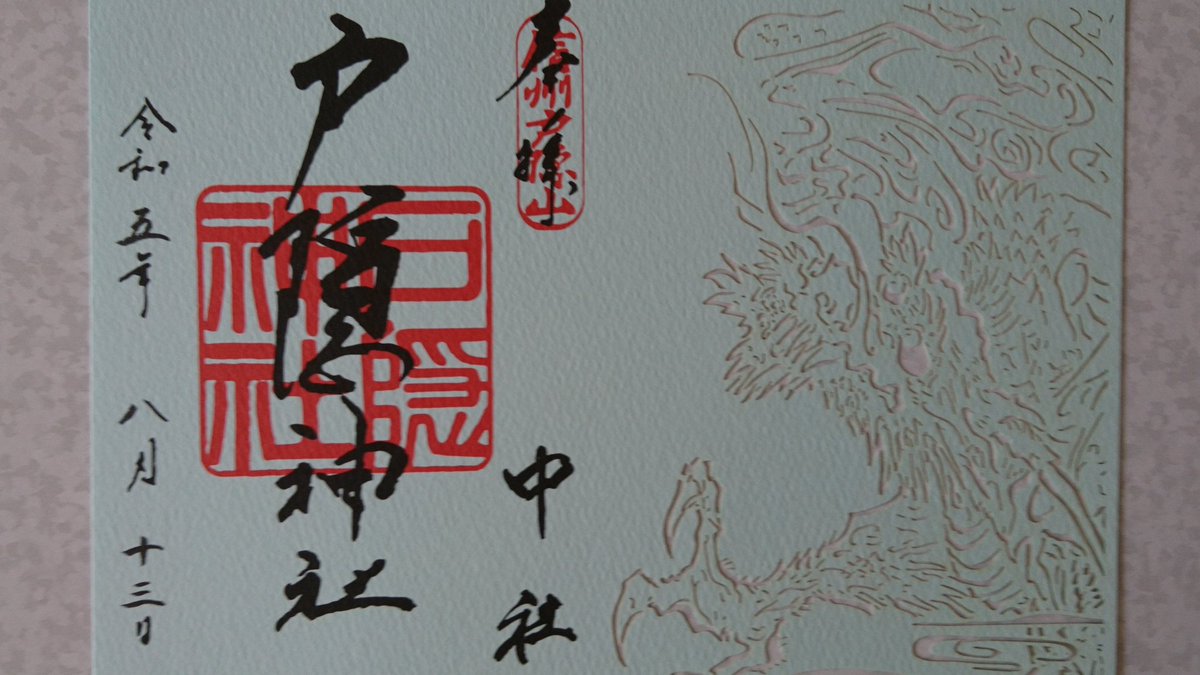 奉拝
信州戸隠山
中社
戸隠神社
戸隠神社
令和五年 八月 十三日